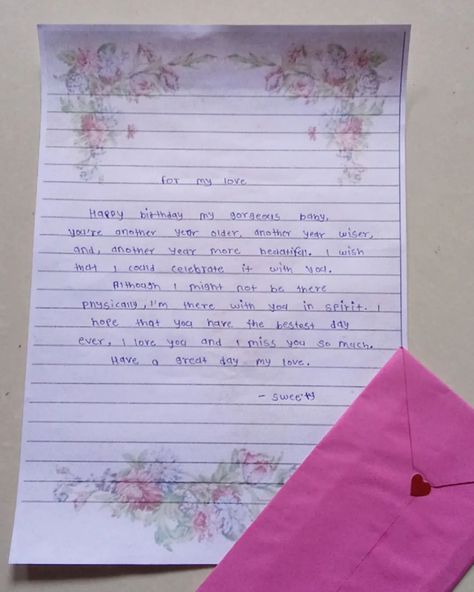 for my love
Happy birthday my gorgeous baby,
you're another year older, another year wiser,
and, another year more beatiful. I wish
that I could celebrate it with you.
Although I might not be there
physically, I'm there with you in spirit. I
hope that you have the bestest day
ever, I love you and I miss you so much.
Have a great day my love.
- sweety